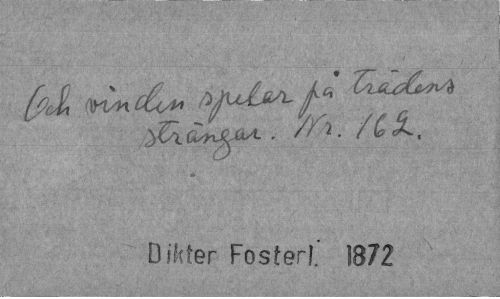 Och vinden spelar på trädens
strängar. Nr. 162.
Dikter Fosterl. 1872